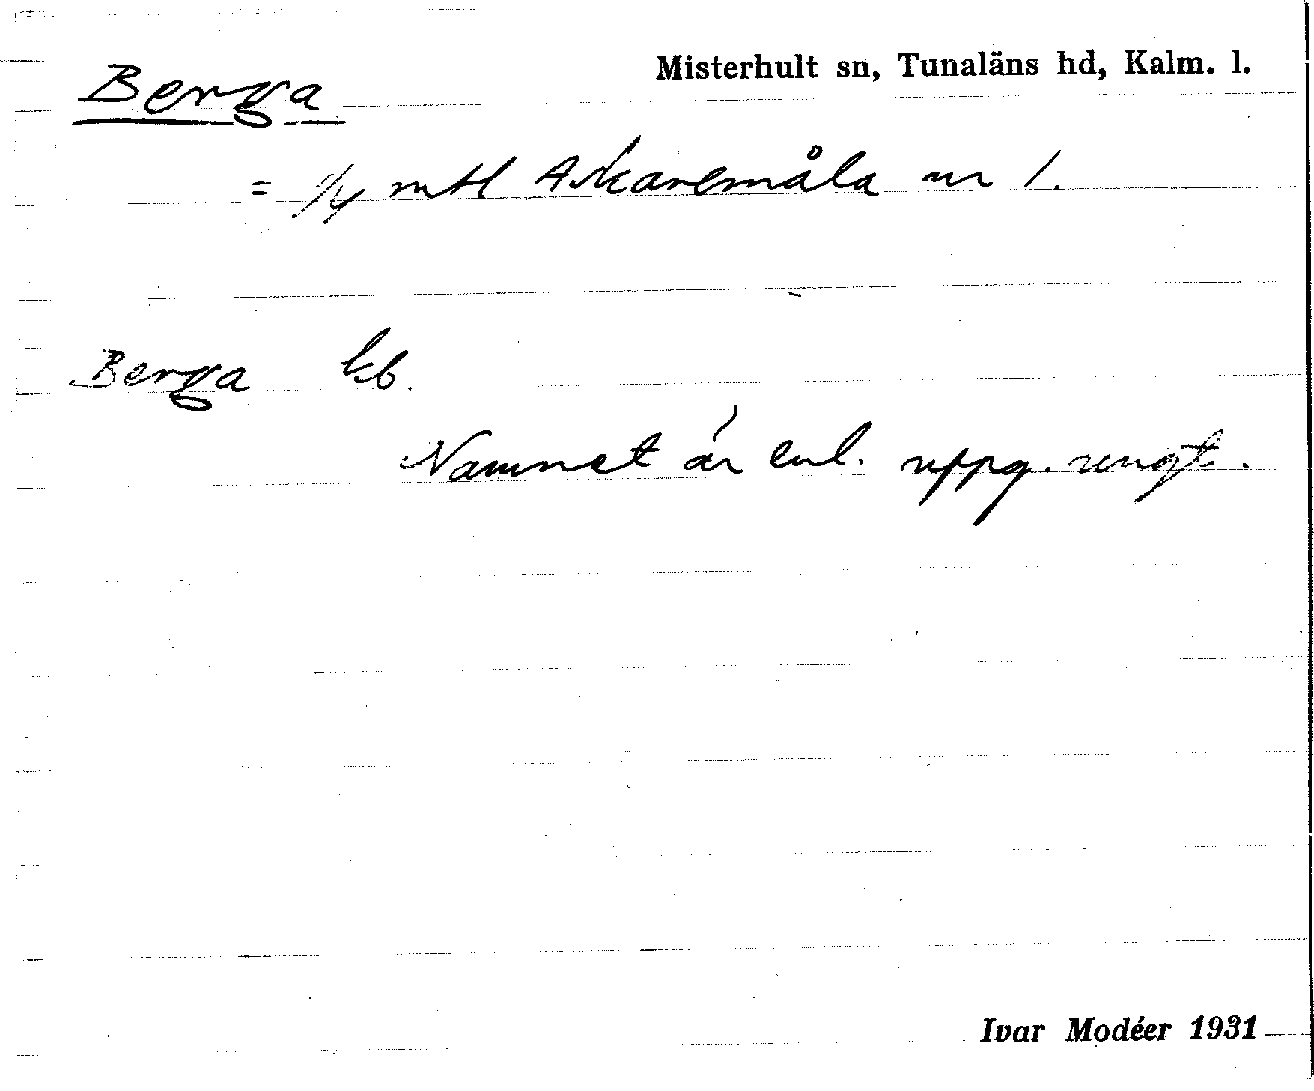 Misterhult sn, Tunaläns hd, Kalm. l.
Berga
= 1/4 mtl Askaremåla nr 1.
Berga kb.
Namnet är enl. uppg. ungt.
Ivar Modéer 1931